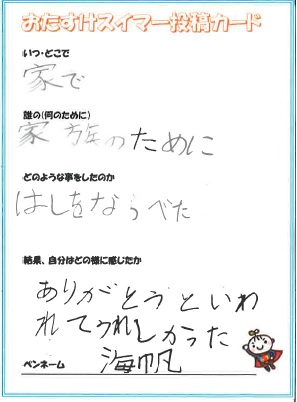 おたすけスイマー投稿カード
いつ・どこで
家で
誰の(何のために)
家族のために
どのような事をしたのか
はしをならべた
結果、自分はどの様に感じたか
ありがとうといわ
れてうれしかった
ペンネーム 海帆